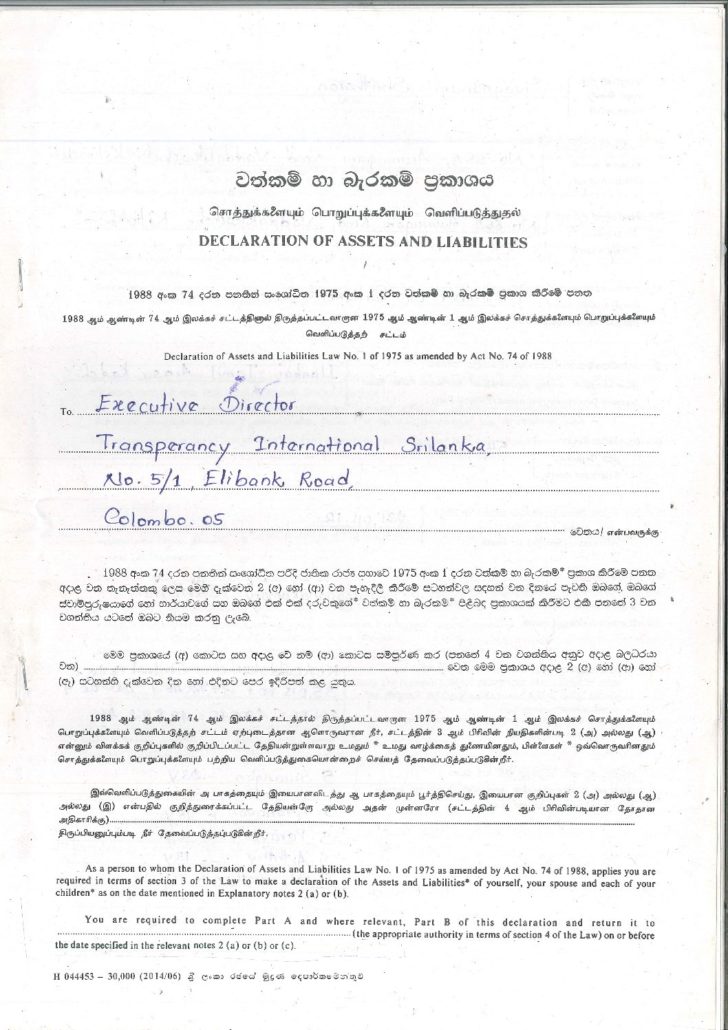 වත්කම් හා බැරකම් ප්‍රකාශය
சொத்துக்களையும் பொறுப்புக்களையும் வெளிப்படுத்துதல்
DECLARATION OF ASSETS AND LIABILITIES
1988 අංක 74 දරන පනතින් සංශෝධිත 1975 අංක 1 දරන වත්කම් හා බැරකම් ප්‍රකාශ කිරීමේ පනත
1988 ஆம் ஆண்டின் 74 ஆம் இலக்கச் சட்டத்தினால் திருத்தப்பட்டவாறான 1975 ஆம் ஆண்டின் 1 ஆம் இலக்கச் சொத்துக்களையும் பொறுப்புக்களையும்
வெளிப்படுத்தற் சட்டம்
Declaration of Assets and Liabilities Law No. 1 of 1975 as amended by Act No. 74 of 1988
To. Executive Director
Transperancy International Srilanka,
No. 5/1, Elibank Road,
Colombo. 05
වෙතය/ என்பவருக்கு
1988 අංක 74 දරන පනතින් සංශෝධිත පරිදි ජාතික රාජ්‍ය සභාවේ 1975 අංක 1 දරන වත්කම් හා බැරකම්* ප්‍රකාශ කිරීමේ පනත
අදාළ වන තැනැත්තකු ලෙස මෙහි දැක්වෙන 2 (අ) හෝ (ආ) වන පැහැදිලි කිරීමේ සටහන්වල සඳහන් වන දිනයේ පැවති ඔබගේ, ඔබගේ
ස්වාමිපුරුෂයාගේ හෝ භාර්යාවගේ සහ ඔබගේ එක් එක් දරුවකුගේ* වත්කම් හා බැරකම්* පිළිබඳ ප්‍රකාශයක් කිරීමට එකී පනතේ 3 වන
වගන්තිය යටතේ ඔබට නියම කරනු ලැබේ.
මෙම ප්‍රකාශයේ (අ) කොටස සහ අදාළ වේ නම් (ආ) කොටස සම්පූර්ණ කර (පනතේ 4 වන වගන්තිය අනුව අදාළ බලධරයා
වන) ........ වෙත මෙම ප්‍රකාශය අදාළ 2 (අ) හෝ (ආ) හෝ
(ඇ) සටහන්හි දැක්වෙන දින හෝ එදිනට පෙර ඉදිරිපත් කළ යුතුය.
1988 ஆம் ஆண்டின் 74 ஆம் இலக்கச் சட்டத்தால் திருத்தப்பட்டவாறான 1975 ஆம் ஆண்டின் 1 ஆம் இலக்கச் சொத்துக்களையும்
பொறுப்புக்களையும் வெளிப்படுத்தற் சட்டம் ஏற்புடைத்தான ஆளொருவரான நீர், சட்டத்தின் 3 ஆம் பிரிவின் நியதிகளின்படி 2 (அ) அல்லது (ஆ)
என்னும் விளக்கக் குறிப்புகளில் குறிப்பிடப்பட்ட தேதியன்றுள்ளவாறு உமதும் * உமது வாழ்க்கைத் துணையினதும், பிள்ளைகள் * ஒவ்வொருவரினதும்
சொத்துக்களையும் பொறுப்புகளையும் பற்றிய வெளிப்படுத்துகையொன்றைச் செய்யத் தேவைப்படுத்தப்படுகின்றீர்.
இவ்வெளிப்படுத்துகையின் அ பாகத்தையும் இயைபானவிடத்து ஆ பாகத்தையும் பூர்த்திசெய்து, இயைபான குறிப்புகள் 2 (அ) அல்லது (ஆ)
அல்லது (இ) என்பதில் குறித்துரைக்கப்பட்ட தேதியன்றோ அல்லது அதன் முன்னரோ (சட்டத்தின் 4 ஆம் பிரிவின்படியான தோதான
அதிகாரிக்கு)........
திருப்பியனுப்பும்படி நீர் தேவைப்படுத்தப்படுகின்றீர்.
As a person to whom the Declaration of Assets and Liabilities Law No. 1 of 1975 as amended by Act No. 74 of 1988, applies you are
required in terms of section 3 of the Law to make a declaration of the Assets and Liabilities* of yourself, your spouse and each of your
children* as on the date mentioned in Explanatory notes 2 (a) or (b).
You are required to complete Part A and where relevant, Part B of this declaration and return it to
........ (the appropriate authority in terms of section 4 of the Law) on or before
the date specified in the relevant notes 2 (a) or (b) or (c).
H 044453 – 30,000 (2014/06) ශ්‍රී ලංකා රජයේ මුද්‍රණ දෙපාර්තමේන්තුව